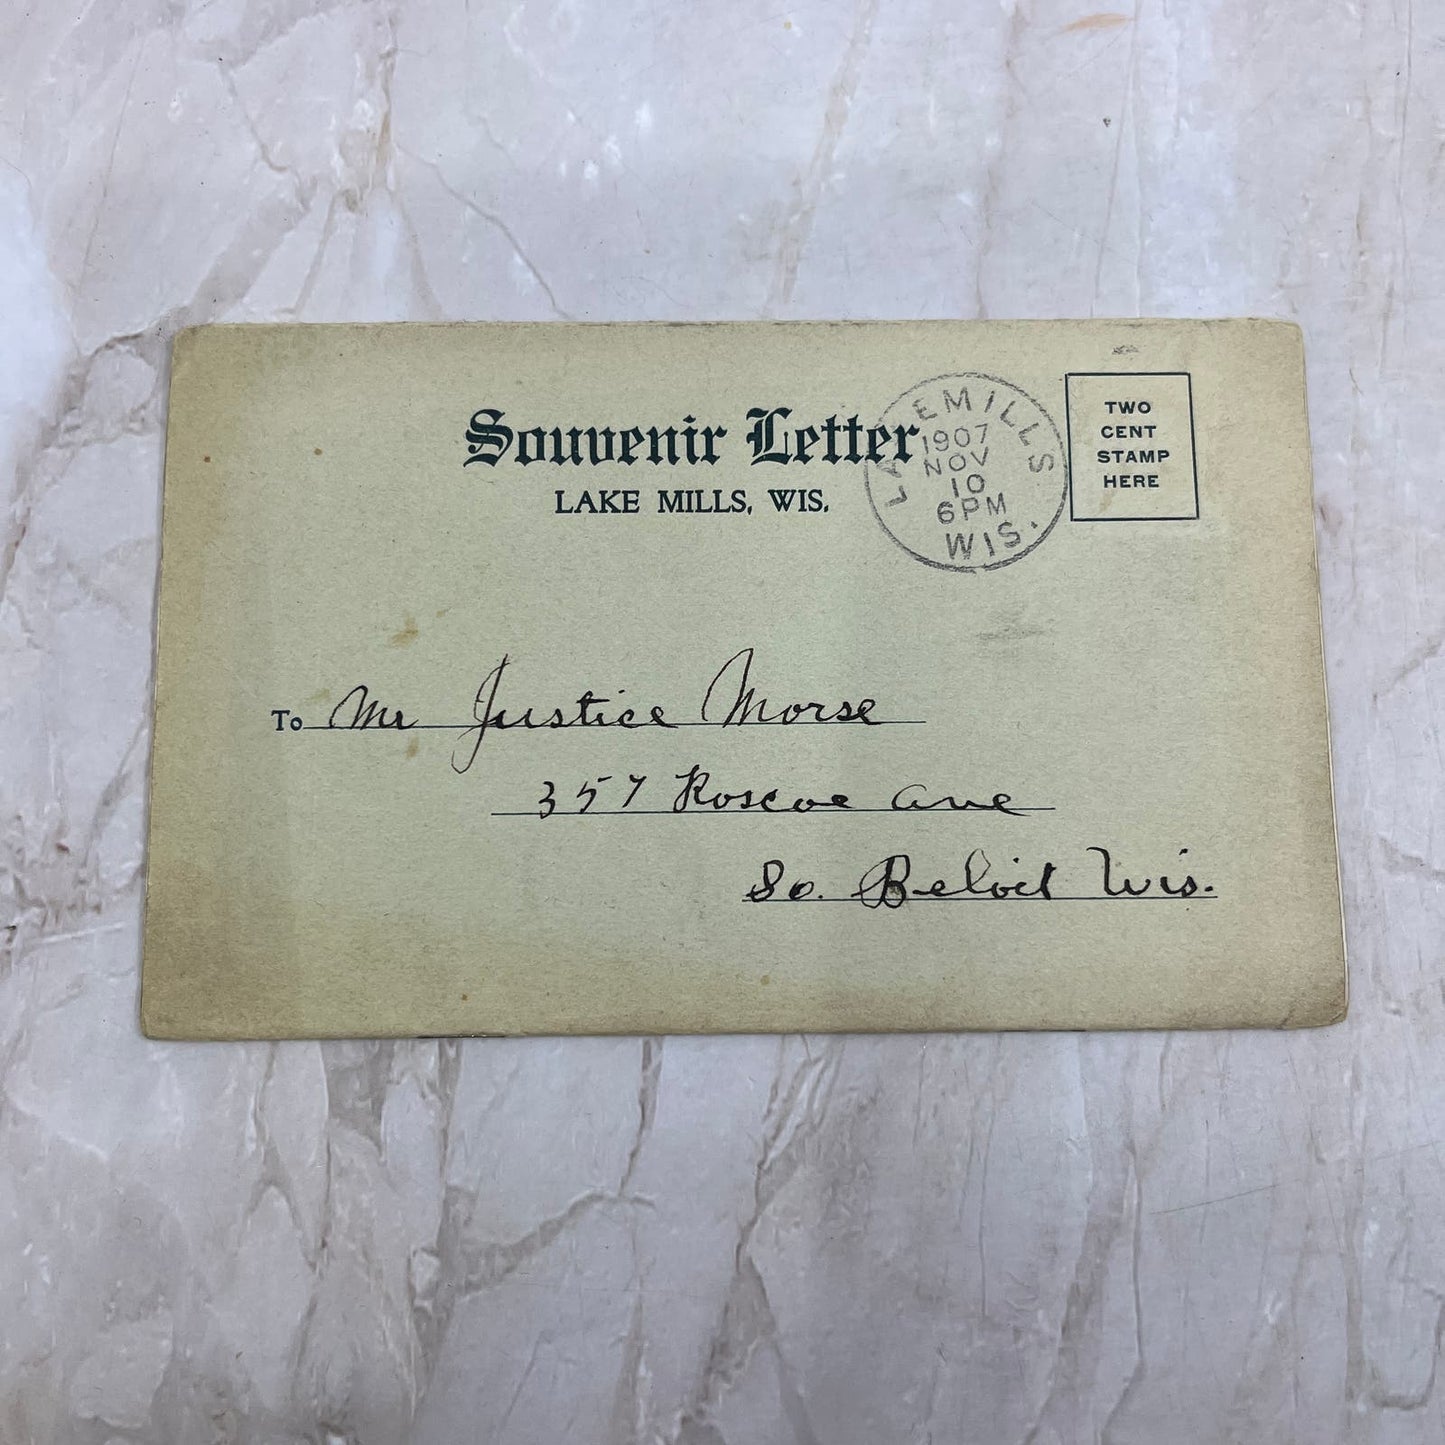 Souvenir Letter
LAKE MILLS, WIS.
LAKE MILLS
1907
NOV
10
6PM
WIS.
TWO
CENT
STAMP
HERE
To Mr Justice Morse
357 Roscoe Ave
So. Beloit Wis.